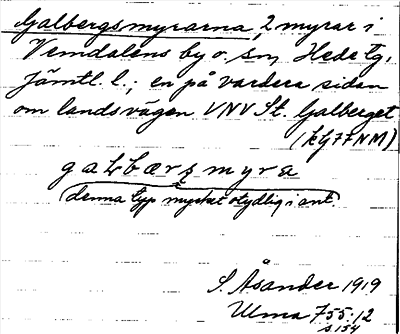 Galbergsmyrarna, 2 myrar i
Vemdalens by o. sn, Hede tg,
Jämtl. l.; en på vardera sidan
om landsvägen VNV St. Galberget
(kg 77 NM)
galbærsmyra
(denna typ mycket otydlig i ant.)
S. Åsander 1919
Ulma 755:12
s 154